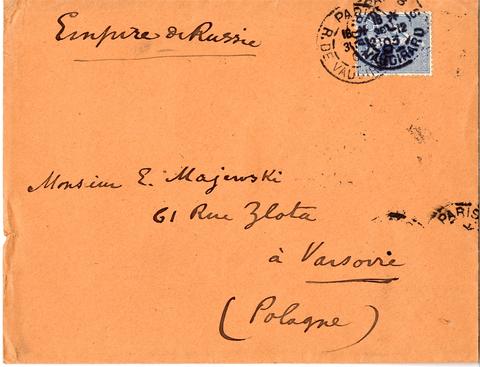 Empire de Russie
PARIS
R. DE VAUGIRARD
Monsieur E. Majewski
61 Rue Zlota
à Varsovie
(Pologne)
PARIS